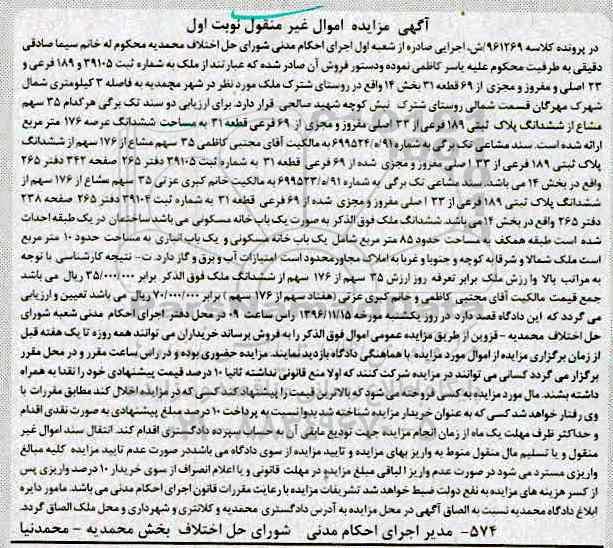 آگهی مزایده اموال غیر منقول نوبت اول
در پرونده کلاسه ۹۶۱۲۶۹/ش. اجرایی صادره از شعبه اول اجرای احکام مدنی شورای حل اختلاف محمدیه محکوم له خانم سیما صادقی
دقیقی به طرفیت محکوم علیه یاسر کاظمی نموده ودستور فروش آن صادر شده که عبارتند از ملک به شماره ثبت ۳۹۱۰۵ و ۱۸۹ فرعی و
۲۳ اصلی و مفروز و مجزی از ۶۹ قطعه ۳۱ بخش ۱۴ واقع در روستای شترک ملک مورد نظر در شهر محمدیه به فاصله ۳ کیلومتری شمال
شهرک مهرگان قسمت شمالی روستای شترک نبش کوچه شهید صالحی قرار دارد. برای ارزیابی دو سند تک برگی هرکدام ۳۵ سهم
مشاع از ششدانگ پلاک ثبتی ۱۸۹ فرعی از ۲۳ اصلی مفروز و مجزی از ۶۹ فرعی قطعه ۳۱ به مساحت ششدانگ عرصه ۱۷۶ متر مربع
ارائه شده است. سند مشاعی تک برگی به شماره ۹۱/ه/۶۹۹۵۲۴ به مالکیت آقای مجتبی کاظمی ۳۵ سهم مشاع از ۱۷۶ سهم از ششدانگ
پلاک ثبتی ۱۸۹ فرعی از ۲۳ اصلی مفروز و مجزی شده از ۶۹ فرعی قطعه ۳۱ به شماره ثبت ۳۹۱۰۵ دفتر ۲۶۵ صفحه ۲۴۲ دفتر ۲۶۵
واقع در بخش ۱۴ می باشد. سند مشاعی تک برگی به شماره ۹۱/ه/۶۹۹۵۲۳ به مالکیت خانم کبری عزتی ۳۵ سهم مشاع از ۱۷۶ سهم از
ششدانگ پلاک ثبتی ۱۸۹ فرعی از ۲۳ اصلی مفروز و مجزی شده از ۶۹ فرعی قطعه ۳۱ به شماره ثبت ۳۹۱۰۴ دفتر ۲۶۵ صفحه ۲۳۸
دفتر ۲۶۵ واقع در بخش ۱۴ می باشد. ششدانگ ملک فوق الذکر به صورت یک باب خانه مسکونی می باشد ساختمان در یک طبقه احداث
شده است طبقه همکف به مساحت حدود ۸۵ متر مربع شامل یک باب خانه مسکونی و یک باب انباری به مساحت حدود ۱۰ متر مربع
است ملک شمالا و شرقا به کوچه و جنوبا و غربا به املاک مجاور محدود است امتیازات آب و برق و گاز دارد. ت- نتیجه کارشناسی با توجه
به مراتب بالا وارزش ملک برابر تعرفه روز ارزش ۳۵ سهم از ۱۷۶ سهم از ششدانگ ملک فوق الذکر برابر ۳۵/۰۰۰/۰۰۰ ریال می باشد
جمع قیمت مالکیت آقای مجتبی کاظمی و خانم کبری عزتی (هفتاد سهم از ۱۷۶ سهم ) برابر ۷۰/۰۰۰/۰۰۰ ریال می باشد تعیین و ارزیابی
می گردد که این دادگاه قصد دارد در روز یکشنبه مورخه ۱۳۹۶/۱۱/۱۵ راس ساعت ۰۹ در محل دفتر اجرای احکام مدنی شعبه شورای
حل اختلاف محمدیه - قزوین از طریق مزایده عمومی اموال فوق الذکر را به فروش برساند خریداران می توانند همه روزه تا یک هفته قبل
از زمان برگزاری مزایده از اموال مورد مزایده با هماهنگی دادگاه بازدید نمایند. مزایده حضوری بوده و در راس ساعت مقرر و در محل مقرر
برگزار می گردد کسانی می توانند در مزایده شرکت کنند که اولا منع قانونی نداشته ثانیا ۱۰ درصد قیمت پیشنهادی خود را نقدا به همراه
داشته بشند. مال مورد مزایده به کسی فروخته می شود که بالاترین قیمت را پیشنهاد کند کسی که در مزایده اخلال کند مطابق مقررات با
وی رفتار خواهد شد کسی که به عنوان خریدار مزایده شناخته شد بدوا نسبت به پرداخت ۱۰ درصد مبلغ پیشنهادی به صورت نقدی اقدام
و حداکثر ظرف مهلت یک ماه از زمان انجام مزایده جهت تودیع مابقی آن به حساب سپرده دادگستری اقدام کند. انتقال سند اموال غیر
منقول و یا تسلیم مال منقول منوط به واریز بهای مزایده و تایید مزایده از سوی دادگاه می باشد در صورت عدم تایید مزایده کلیه مبالغ
واریزی مسترد می شود در صورت عدم واریز الباقی مبلغ مزایده در مهلت قانونی و یا اعلام انصراف از سوی خریدار ۱۰ درصد واریزی پس
از کسر هزینه های مزایده به نفع دولت ضبط خواهد شد تشریفات مزایده با رعایت مقررات قانون اجرای احکام مدنی می باشد. مامور دایره
ابلاغ دادگاه محمدیه نسبت به الصاق آگهی در محل مزایده به آدرس دادگستری محمدیه و کلانتری و شهرداری و محل ملک الصاق گردد.
۵۷۴- مدیر اجرای احکام مدنی شورای حل اختلاف بخش محمدیه - محمدنیا